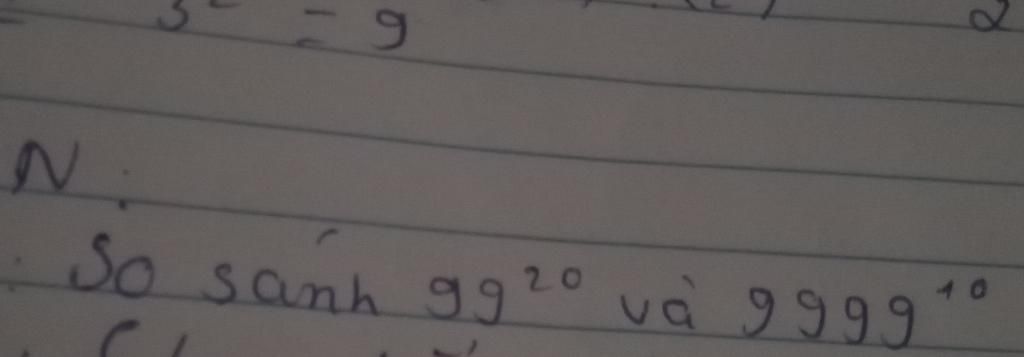 3² = 9
N.
So sánh 99²⁰ và 9999¹⁰